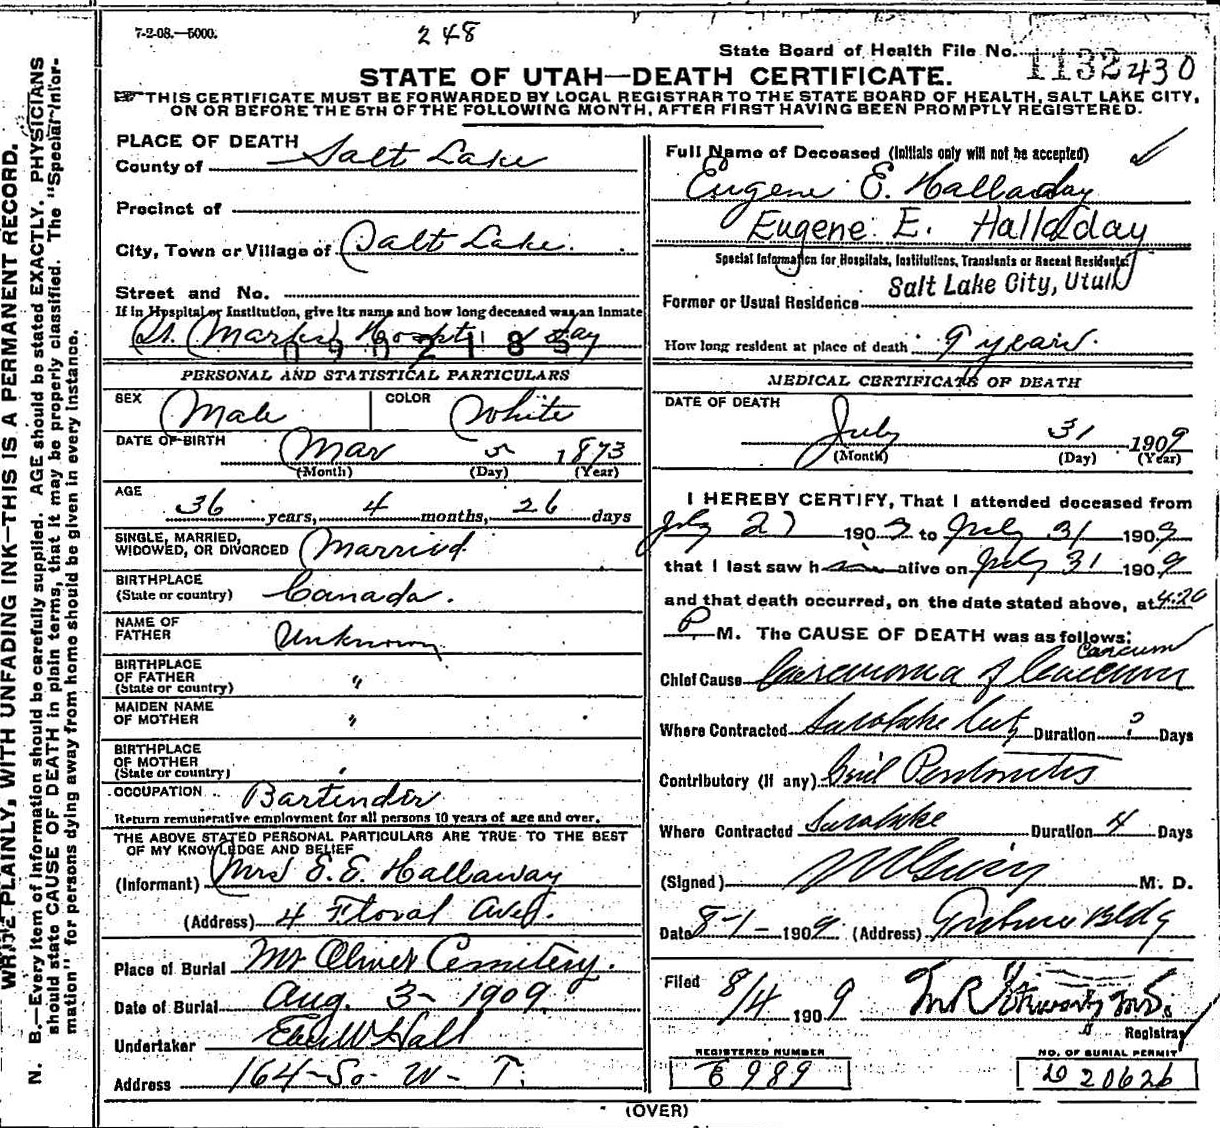 7-2-08.—5000.
248
State Board of Health File No. 1132430
STATE OF UTAH—DEATH CERTIFICATE.
THIS CERTIFICATE MUST BE FORWARDED BY LOCAL REGISTRAR TO THE STATE BOARD OF HEALTH, SALT LAKE CITY,
ON OR BEFORE THE 5TH OF THE FOLLOWING MONTH, AFTER FIRST HAVING BEEN PROMPTLY REGISTERED.
WRITE PLAINLY, WITH UNFADING INK—THIS IS A PERMANENT RECORD.
N. B.—Every item of information should be carefully supplied. AGE should be stated EXACTLY. PHYSICIANS
should state CAUSE OF DEATH in plain terms, that it may be properly classified. The "Special Infor-
mation" for persons dying away from home should be given in every instance.
PLACE OF DEATH
County of Salt Lake
Precinct of
City, Town or Village of Salt Lake.
Street and No.
If in Hospital or Institution, give its name and how long deceased was an inmate
St. Marks Hospt. day
0902185
PERSONAL AND STATISTICAL PARTICULARS
SEX Male COLOR White
DATE OF BIRTH Mar 5 1873
(Month) (Day) (Year)
AGE
36 years, 4 months, 26 days
SINGLE, MARRIED,
WIDOWED, OR DIVORCED Married
BIRTHPLACE
(State or country) Canada.
NAME OF
FATHER Unknown
BIRTHPLACE
OF FATHER
(State or country) "
MAIDEN NAME
OF MOTHER "
BIRTHPLACE
OF MOTHER
(State or country)
OCCUPATION Bartender
Return remunerative employment for all persons 10 years of age and over.
THE ABOVE STATED PERSONAL PARTICULARS ARE TRUE TO THE BEST
OF MY KNOWLEDGE AND BELIEF
(Informant) Mrs E. E. Hallaway
(Address) 4 Floral Ave.
Place of Burial Mt Olivet Cemetery.
Date of Burial Aug. 3- 1909
Undertaker Eber W Hall
Address 164-So. W- T.
Full Name of Deceased (Initials only will not be accepted)
Eugene E. Halladay
Eugene E. Halladay
Special Information for Hospitals, Institutions, Transients or Recent Residents.
Salt Lake City, Utah
Former or Usual Residence
How long resident at place of death 9 years.
MEDICAL CERTIFICATE OF DEATH
DATE OF DEATH
July 31 1909
(Month) (Day) (Year)
I HEREBY CERTIFY, That I attended deceased from
July 27 1909 to July 31 1909
that I last saw h alive on July 31 1909
and that death occurred, on the date stated above, at 4:20
P. M. The CAUSE OF DEATH was as follows:
Chief Cause Carcinoma of
Where Contracted Duration ? Days
Contributory (if any) Peritonitis
Where Contracted Duration 4 Days
(Signed) M. D.
Date 8-1- 1909 (Address) Bldg
Filed 8/4 1909
Registrar
REGISTERED NUMBER
989
NO. OF BURIAL PERMIT
20626
(OVER)